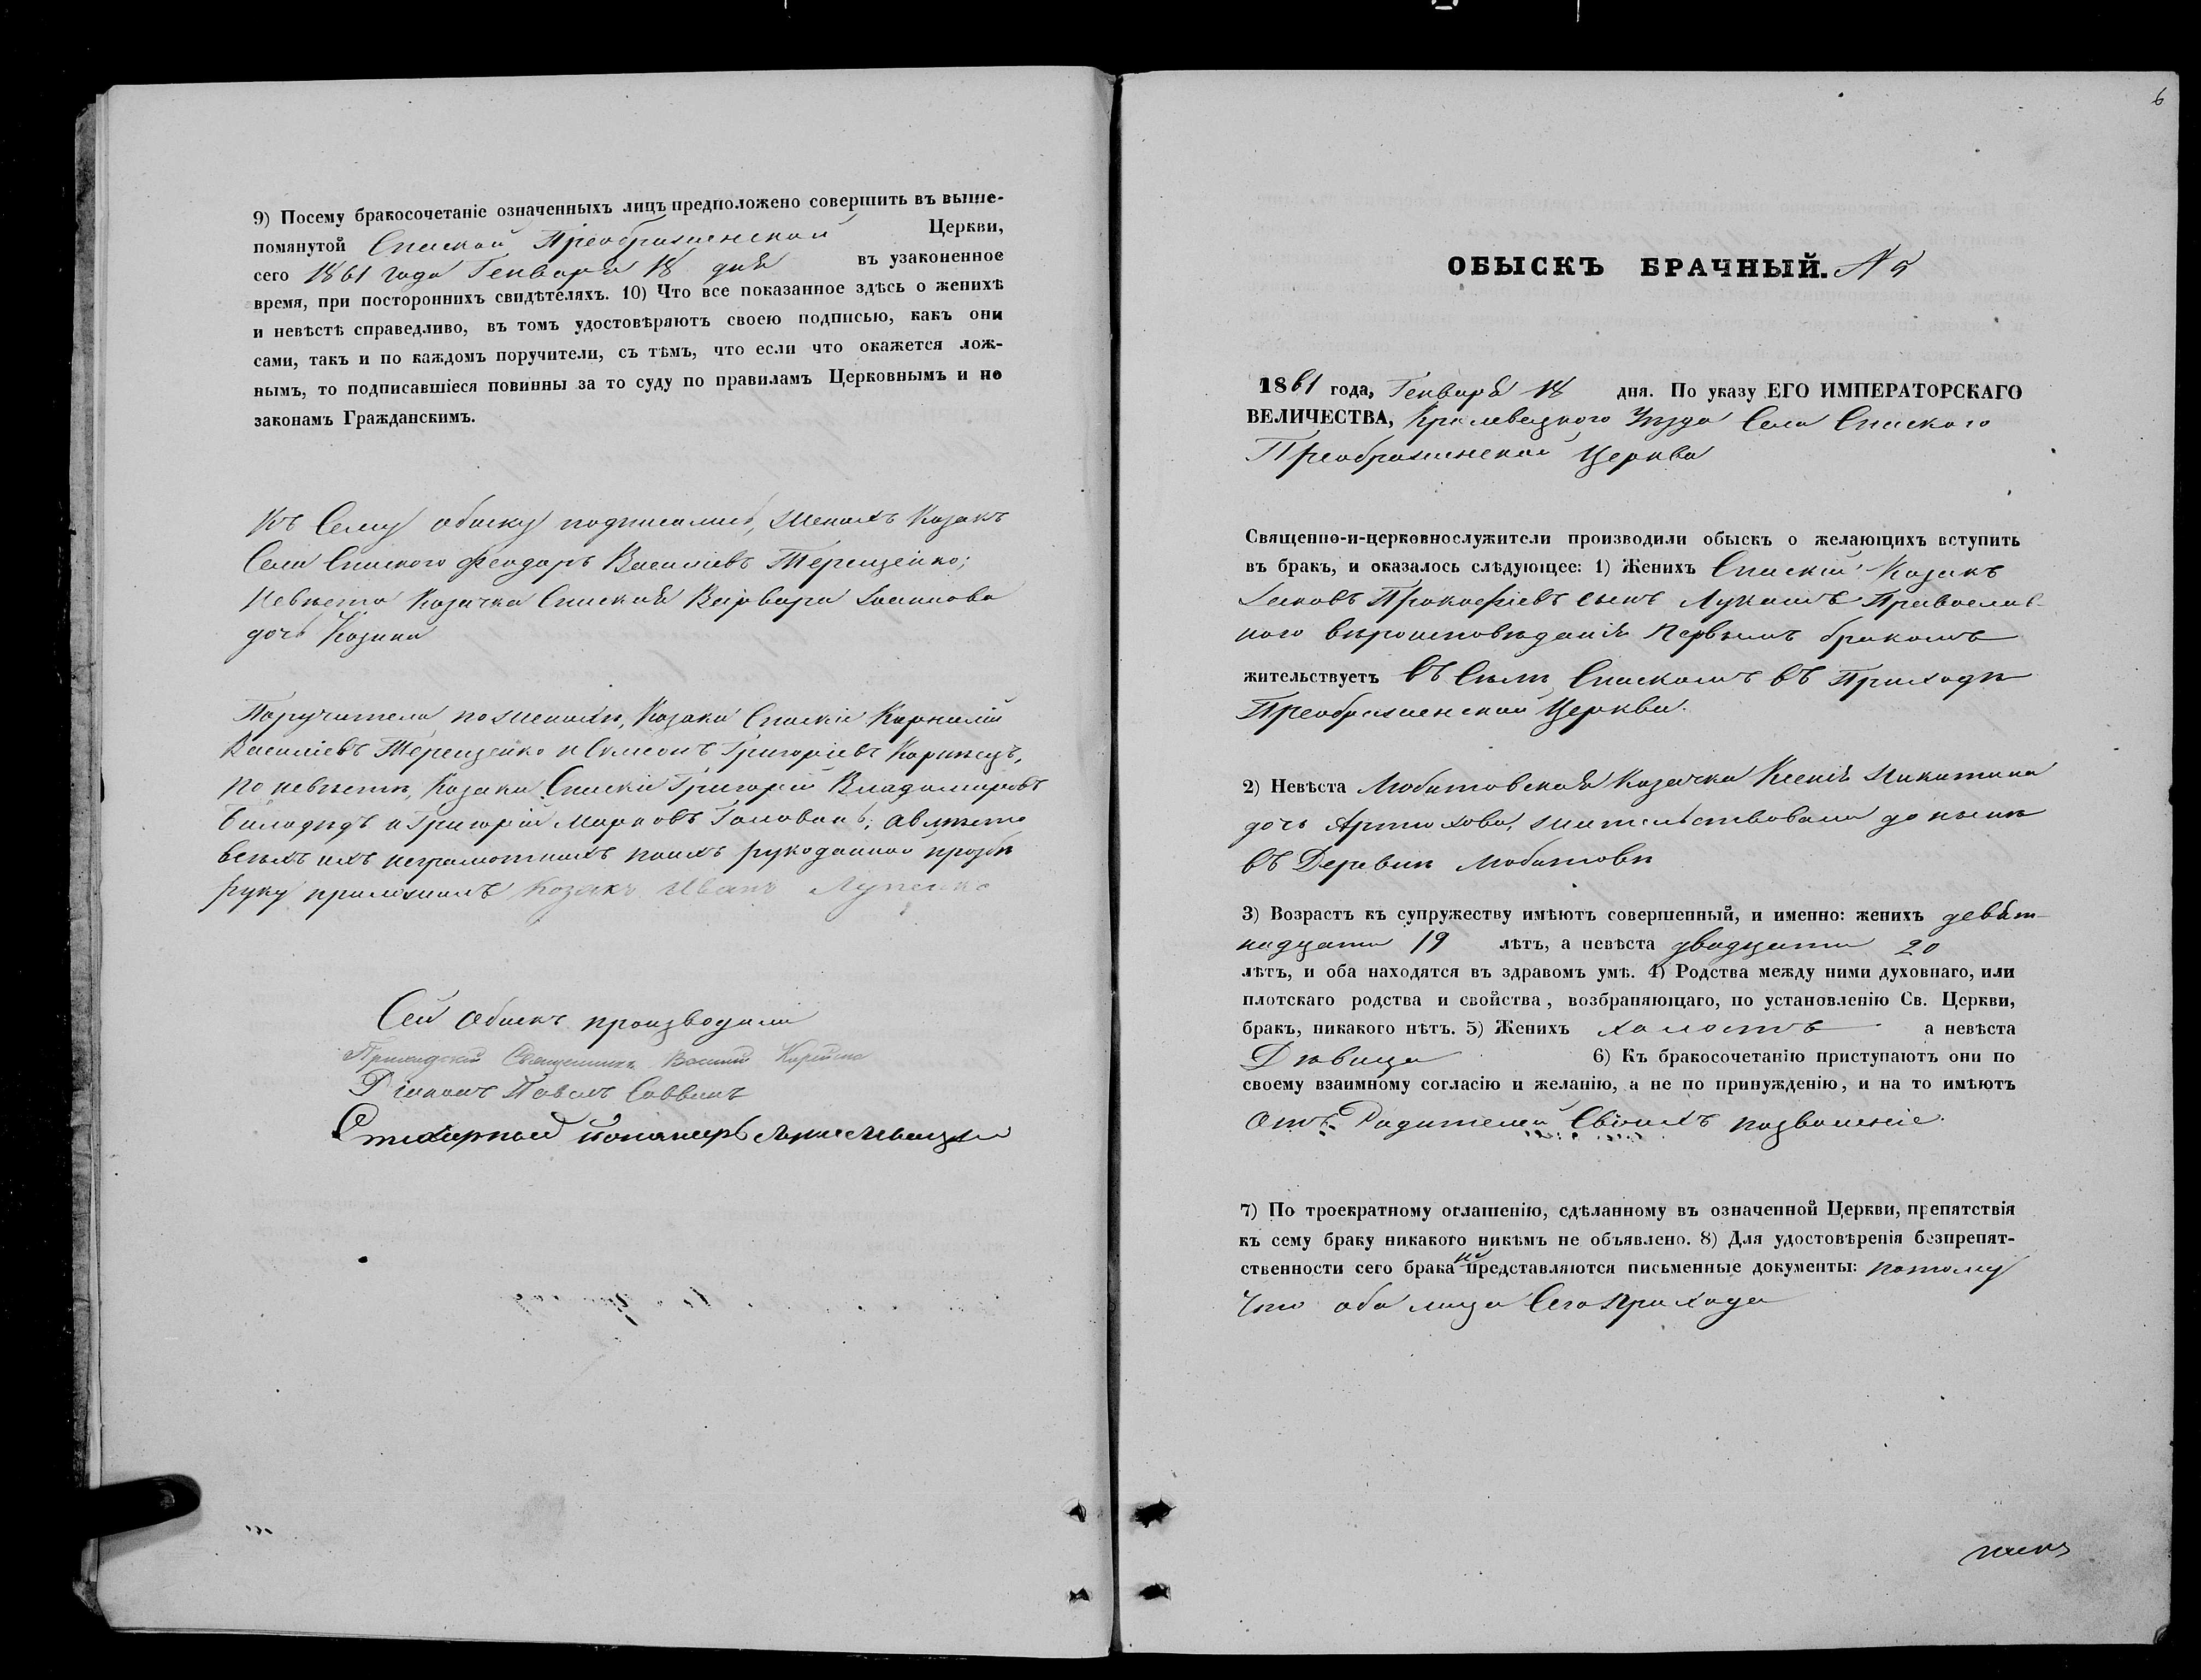 9) Посему бракосочетаніе означенныхъ лицъ предположено совершить въ выше-
помянутой Спаской Преображенской Церкви,
сего 1861 года Генваря 18 дня въ узаконенное
время, при постороннихъ свидѣтеляхъ. 10) Что все показанное здѣсь о женихѣ
и невѣстѣ справедливо, въ томъ удостовѣряютъ своею подписью, какъ они
сами, такъ и по каждомъ поручители, съ тѣмъ, что если что окажется лож-
нымъ, то подписавшіеся повинны за то суду по правиламъ Церковнымъ и по
законамъ Гражданскимъ.
Къ Сему обыску подписались, женихъ Козакъ
Села Спаского Феодоръ Василіевъ Терещенко;
Невѣста Козачка Спаская Варвара
дочь
Поручители по женихѣ, Козаки Спаскіе Корнилій
Василіевъ Терещенко и Симеонъ Григоріевъ
по невѣстѣ, Козаки Спаскіе Григорій Владимировъ
Билодѣдъ и Григорій Марковъ Головань; а вмѣсто
всѣхъ ихъ неграмотныхъ поихъ рукоданной прозбѣ
руку приложилъ Козакъ Иванъ
Сей обыскъ производили
Приходскій Священникъ Василій
Діяконъ Павелъ Саввичъ
Стихарный пономарь
6
ОБЫСКЪ БРАЧНЫЙ. N 5
1861 года, Генваря 18 дня. По указу ЕГО ИМПЕРАТОРСКАГО
ВЕЛИЧЕСТВА, Кролевецкого Уѣзда Села Спаского
Преображенской Церкви
Священно-и-церковнослужители производили обыскъ о желающихъ вступить
въ бракъ, и оказалось слѣдующее: 1) Женихъ Спаскій Козакъ
Іаковъ Прокофіевъ сынъ Лукашъ Православ-
ного вѣроисповѣданія первымъ бракомъ
жительствуетъ въ Селѣ Спаскомъ въ Приходѣ
Преображенской Церкви.
2) Невѣста Любитовская Козачка Ксенія Никитина
дочь Артюхова, жительствовала до нынѣ
въ Деревни Любитовѣ
3) Возрастъ къ супружеству имѣютъ совершенный, и именно: женихъ девят-
надцати 19 лѣтъ, а невѣста двадцати 20
лѣтъ, и оба находятся въ здравомъ умѣ. 4) Родства между ними духовнаго, или
плотскаго родства и свойства, возбраняющаго, по установленію Св. Церкви,
бракъ, никакого нѣтъ. 5) Женихъ холостъ а невѣста
Дѣвица 6) Къ бракосочетанію приступаютъ они по
своему взаимному согласію и желанію, а не по принужденію, и на то имѣютъ
отъ Родителей Своихъ позволеніе.
7) По троекратному оглашенію, сдѣланному въ означенной Церкви, препятствія
къ сему браку никакого никѣмъ не объявлено. 8) Для удостовѣренія безпрепят-
ственности сего брака не представляются письменные документы: потому
что оба лица Сего прихода